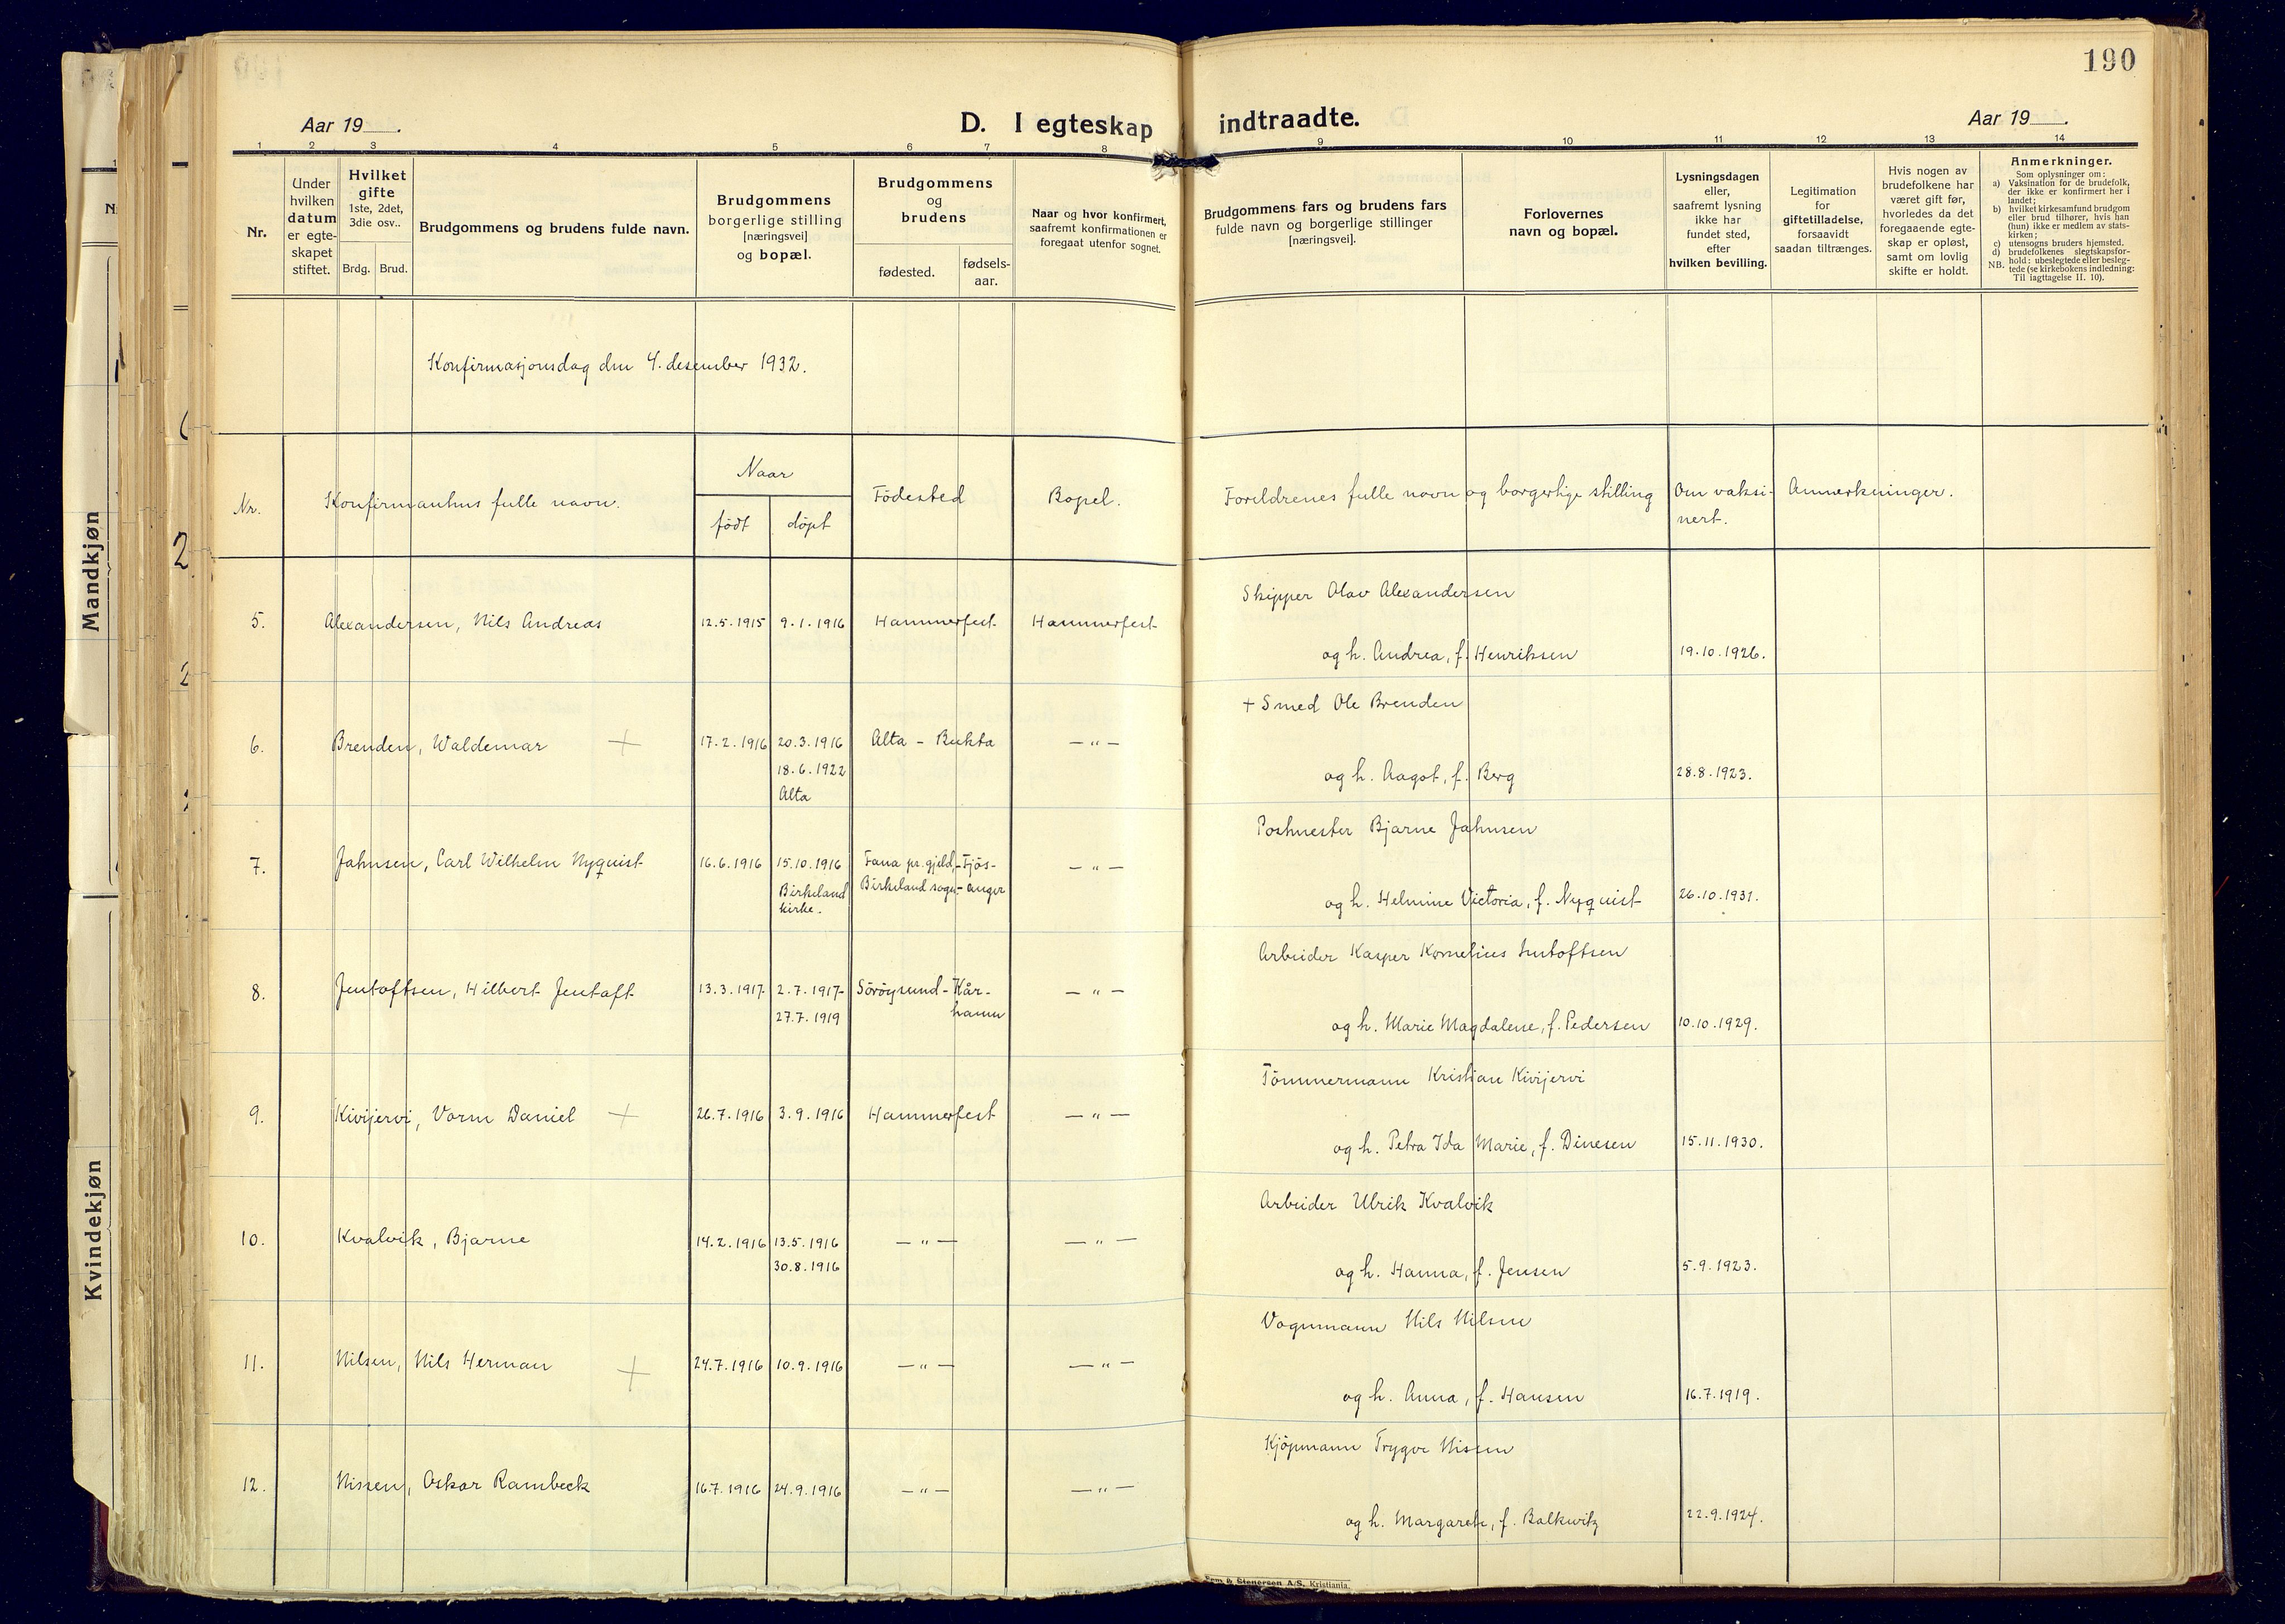 190
Aar 19 .
D. I egteskap indtraadte.
Aar 19 .
1 2 3 4 5 6 7 8 9 10 11 12 13 14
Nr.
Under
hvilken
datum
er egte-
skapet
stiftet.
Hvilket
gifte
1ste, 2det,
3die osv..
Brdg. Brud.
Brudgommens og brudens fulde navn.
Brudgommens
borgerlige stilling
[næringsvei]
og bopæl.
Brudgommens
og
brudens
fødested.
fødsels-
aar.
Naar og hvor konfirmert,
saafremt konfirmationen er
foregaat utenfor sognet.
Brudgommens fars og brudens fars
fulde navn og borgerlige stillinger
[næringsvei].
Forlovernes
navn og bopæl.
Lysningsdagen
eller,
saafremt lysning
ikke har
fundet sted,
efter
hvilken bevilling.
Legitimation
for
giftetilladelse,
forsaavidt
saadan tiltrænges.
Hvis nogen av
brudefolkene har
været gift før,
hvorledes da det
foregaaende egte-
skap er opløst,
samt om lovlig
skifte er holdt.
Anmerkninger.
Som oplysninger om:
a) Vaksination for de brudefolk,
der ikke er konfirmert her i
landet;
b) hvilket kirkesamfund brudgom
eller brud tilhører, hvis han
(hun) ikke er medlem av stats-
kirken;
c) utensogns bruders hjemsted.
d) brudefolkenes slegtskapsfor-
hold: ubeslegtede eller besleg-
NB. tede (se kirkebokens indledning:
Til iagttagelse II. 10).
Konfirmasjonsdag den 4. desember 1932.
Nr.
Konfirmantens fulle navn.
Naar
født døpt
Fødested
Bopel.
Foreldrenes fulle navn og borgerlige stilling
Om vaksi-
nert.
Anmerkninger.
Skipper Olav Alexandersen
5. Alexandersen, Nils Andreas 12.5.1915 9.1.1916 Hammerfest Hammerfest
og h. Andrea, f. Henriksen 19.10.1926.
+ Smed Ole Brenden
6. Brenden, Waldemar + 17.2.1916 20.3.1916 Alta - Bukta — " —
18.6.1922
Alta
og h. Aagot, f. Berg 28.8.1923.
Postmester Bjarne Jahnsen
7. Jahnsen, Carl Wilhelm Nyquist 16.6.1916 15.10.1916 Fana pr.gjeld,- Fjøs- — " —
Birkeland Birkeland sogn- anger
kirke.
og h. Helmine Victoria, f. Nyquist 26.10.1931.
Arbeider Kasper Kornelius Jentoftsen
8. Jentoftsen, Hilbert Jentoft 13.3.1917 2.7.1917 Sørøysund - Kår- — " —
27.7.1919 hamn
og h. Marie Magdalene, f. Pedersen 10.10.1929.
Tømmermann Kristian Kivijervi
9. Kivijervi, Vorm Daniel + 26.7.1916 3.9.1916 Hammerfest — " —
og h. Petra Ida Marie, f. Dinesen 15.11.1930.
Arbeider Ulrik Kvalvik
10. Kvalvik, Bjarne 14.2.1916 13.5.1916 — " — — " —
30.8.1916
og h. Hanna, f. Jensen 5.9.1923.
Vognmann Nils Nilsen
11. Nilsen, Nils Herman + 24.7.1916 10.9.1916 — " — — " —
og h. Anna, f. Hansen 16.7.1919.
Kjøpmann Trygve Nissen
12. Nissen, Oskar Rambeck 16.7.1916 24.9.1916 — " — — " —
og h. Margarete, f. Balkwitz 22.9.1924.
Stenersen A/S, Kristiania.
Mandkjøn
Kvindekjøn